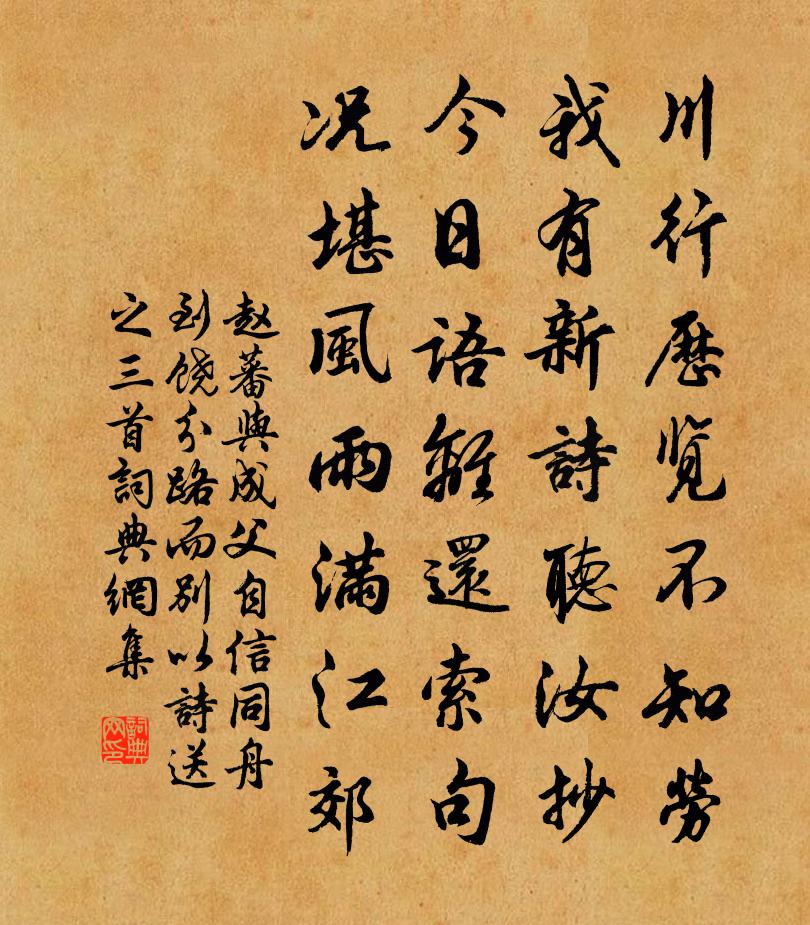 川行歷覽不知勞
我有新詩聽汝抄
今日語離還索句
况堪風雨滿江郊
赵蕃與成父自信同舟
到饶分路而别以詩送
之三首詞典網集
詞典
网印